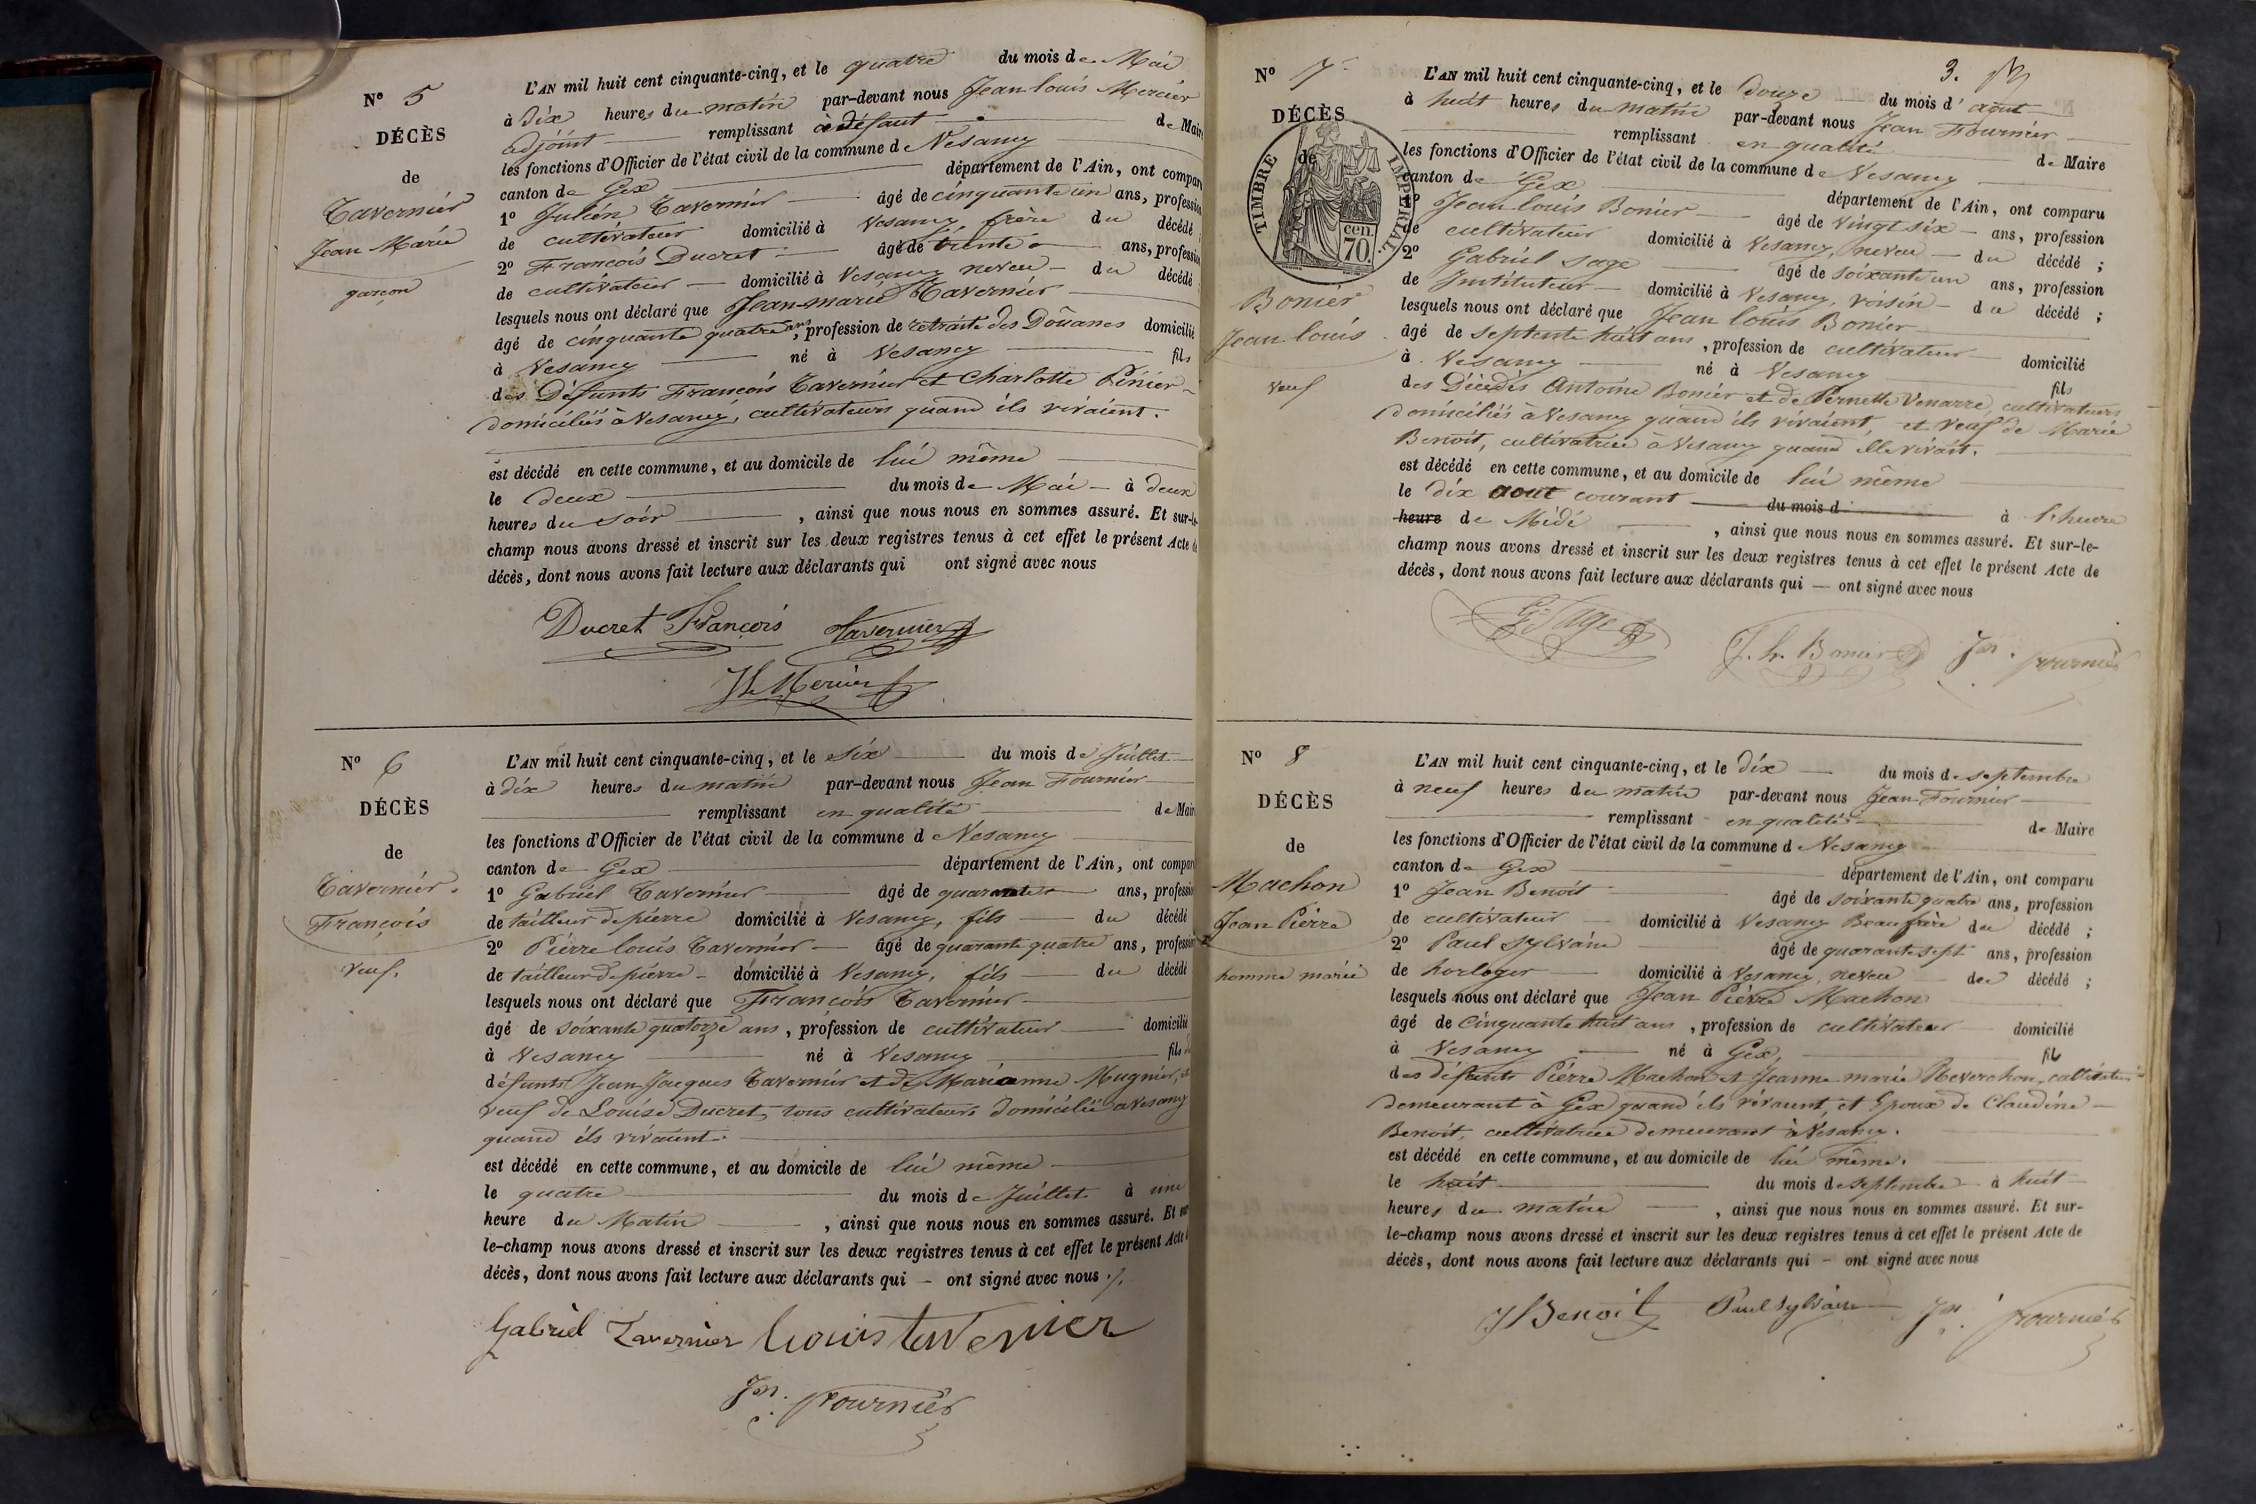 Nº 5
DÉCÈS
de
Tavernier
Jean Marie
garçon
L'AN mil huit cent cinquante-cinq, et le quatre du mois de Mai
à dix heures du matin par-devant nous Jean louis Mercier
adjoint remplissant à défaut de Maire
les fonctions d'Officier de l'état civil de la commune de Vesancy
canton de Gex département de l'Ain, ont comparu
1º Julien Tavernier âgé de cinquante un ans, profession
de cultivateur domicilié à Vesancy frère du décédé
2º François Ducret âgé de trente ans, profession
de cultivateur domicilié à Vesancy neveu du décédé
lesquels nous ont déclaré que Jean-marie Tavernier
âgé de cinquante quatre ans, profession de retraité des Douanes domicilié
à Vesancy né à Vesancy fils
des Défunts François Tavernier et Charlotte Pinier
domiciliés à Vesancy, cultivateurs quand ils vivaient.
est décédé en cette commune, et au domicile de lui même
le deux du mois de Mai à deux
heures du soir, ainsi que nous nous en sommes assuré. Et sur-le-
champ nous avons dressé et inscrit sur les deux registres tenus à cet effet le présent Acte de
décès, dont nous avons fait lecture aux déclarants qui ont signé avec nous
Ducret François Tavernier
JL Mercier
Nº 6
DÉCÈS
de
Tavernier
François
Veuf.
L'AN mil huit cent cinquante-cinq, et le six du mois de Juillet
à dix heures du matin par-devant nous Jean Fournier
remplissant en qualité de Maire
les fonctions d'Officier de l'état civil de la commune d Vesancy
canton de Gex département de l'Ain, ont comparu
1º Gabriel Tavernier âgé de quarante ans, profession
de tailleur de pierre domicilié à Vesancy, fils du décédé
2º Pierre louis Tavernier âgé de quarante quatre ans, profession
de tailleur de pierre domicilié à Vesancy, fils du décédé
lesquels nous ont déclaré que François Tavernier
âgé de soixante quatorze ans, profession de cultivateur domicilié
à Vesancy né à Vesancy fils de
défunts Jean Jacques Tavernier et de Marianne Mugnier, et
veuf de Louise Ducret, tous cultivateurs domiciliés à Vesancy
quand ils vivaient.
est décédé en cette commune, et au domicile de lui même
le quatre du mois de Juillet à une
heure du Matin, ainsi que nous nous en sommes assuré. Et sur-
le-champ nous avons dressé et inscrit sur les deux registres tenus à cet effet le présent Acte de
décès, dont nous avons fait lecture aux déclarants qui — ont signé avec nous
Gabriel Tavernier Louis tavernier
Jn. Fournier
3.
Nº 7
DÉCÈS
de
TIMBRE IMPÉRIAL
cen. 70.
Bonier
Jean louis
veuf
L'AN mil huit cent cinquante-cinq, et le douze du mois d' aout
à huit heures du matin par-devant nous Jean Fournier
remplissant en qualité de Maire
les fonctions d'Officier de l'état civil de la commune de Vesancy
canton de Gex département de l'Ain, ont comparu
1º Jean louis Bonier âgé de vingt six ans, profession
de cultivateur domicilié à Vesancy, neveu du décédé;
2º Gabriel sage âgé de soixante un ans, profession
de Instituteur domicilié à Vesancy, voisin du décédé;
lesquels nous ont déclaré que Jean louis Bonier
âgé de septente huit ans, profession de cultivateur domicilié
à Vesancy né à Vesancy fils
des Décédés Antoine Bonier et de Pernette Venarre, cultivateurs
domiciliés à Vesancy quand ils vivaient, et veuf de Marie
Benoit, cultivatrice à Vesancy quand elle vivait.
est décédé en cette commune, et au domicile de lui même
le dix aout courant du mois d à l'heure
heure de Midi, ainsi que nous nous en sommes assuré. Et sur-le-
champ nous avons dressé et inscrit sur les deux registres tenus à cet effet le présent Acte de
décès, dont nous avons fait lecture aux déclarants qui — ont signé avec nous
G. Sage J. L. Bonier Jn. Fournier
Nº 8
DÉCÈS
de
Machon
Jean Pierre
homme marié
L'AN mil huit cent cinquante-cinq, et le dix du mois de septembre
à neuf heures du matin par-devant nous Jean Fournier
remplissant en qualité de Maire
les fonctions d'Officier de l'état civil de la commune d Vesancy
canton de Gex département de l'Ain, ont comparu
1º Jean Benoit âgé de soixante quatre ans, profession
de cultivateur domicilié à Vesancy Beau frère du décédé;
2º Paul Sylvain âgé de quarante sept ans, profession
de horloger domicilié à Vesancy, neveu du décédé;
lesquels nous ont déclaré que Jean Pierre Machon
âgé de Cinquante huit ans, profession de cultivateur domicilié
à Vesancy né à Gex, fils
des défunts Pierre Machon et Jeanne marie Reverchon, cultivateurs
demeurant à Gex quand ils vivaient, et Epoux de Claudine
Benoit, cultivatrice demeurant à Vesancy.
est décédé en cette commune, et au domicile de lui même.
le huit du mois de septembre à huit
heures du matin, ainsi que nous nous en sommes assuré. Et sur-
le-champ nous avons dressé et inscrit sur les deux registres tenus à cet effet le présent Acte de
décès, dont nous avons fait lecture aux déclarants qui — ont signé avec nous
J Benoit Paul Sylvain Jn. Fournier